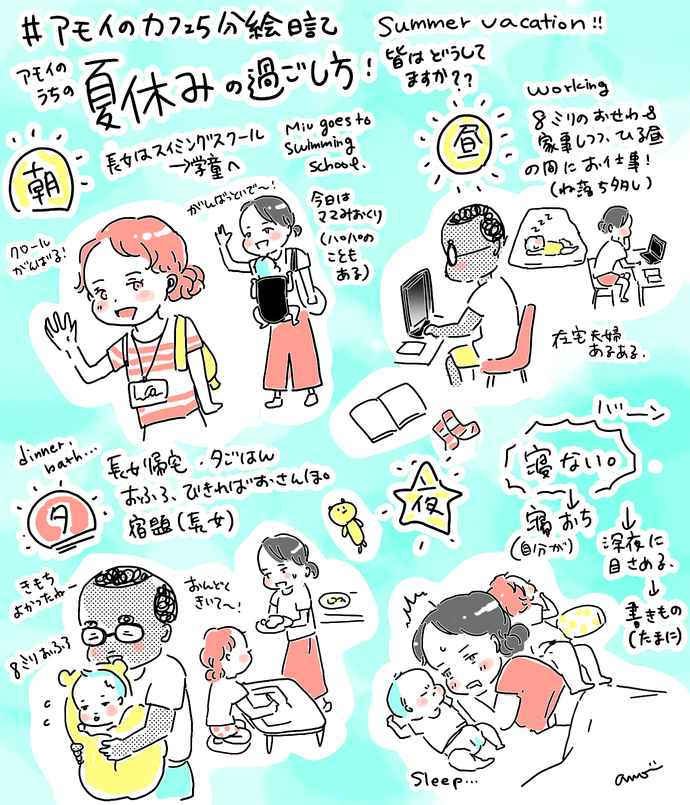 #アモイのカフェ5分絵日記
Summer vacation!!
アモイの
うちの
夏休みの過ごし方!
皆はどうして
ますか??
朝
長女はスイミングスクール
→学童へ
Miu goes to
Swimming
School.
クロール
がんばる!
がんばっといで〜!
今日は
ママみおくり
(パパの
ことも
ある)
昼
working
8ミリのおせわ
家事しつつ、ひる昼
の間にお仕事!
(ね落ち多し)
zzz
在宅夫婦
あるある.
dinner,
bath...
夕
長女帰宅・夕ごはん
おふろ、できればおさんぽ。
宿題(長女)
きもち
よかったねー
8ミリおふろ
おんどく
きいて〜!
夜
バーン
寝ない。
↓
寝おち
(自分が)
↓
深夜に
目さめる.
↓
書きもの
(たまに)
Sleep...
amoi